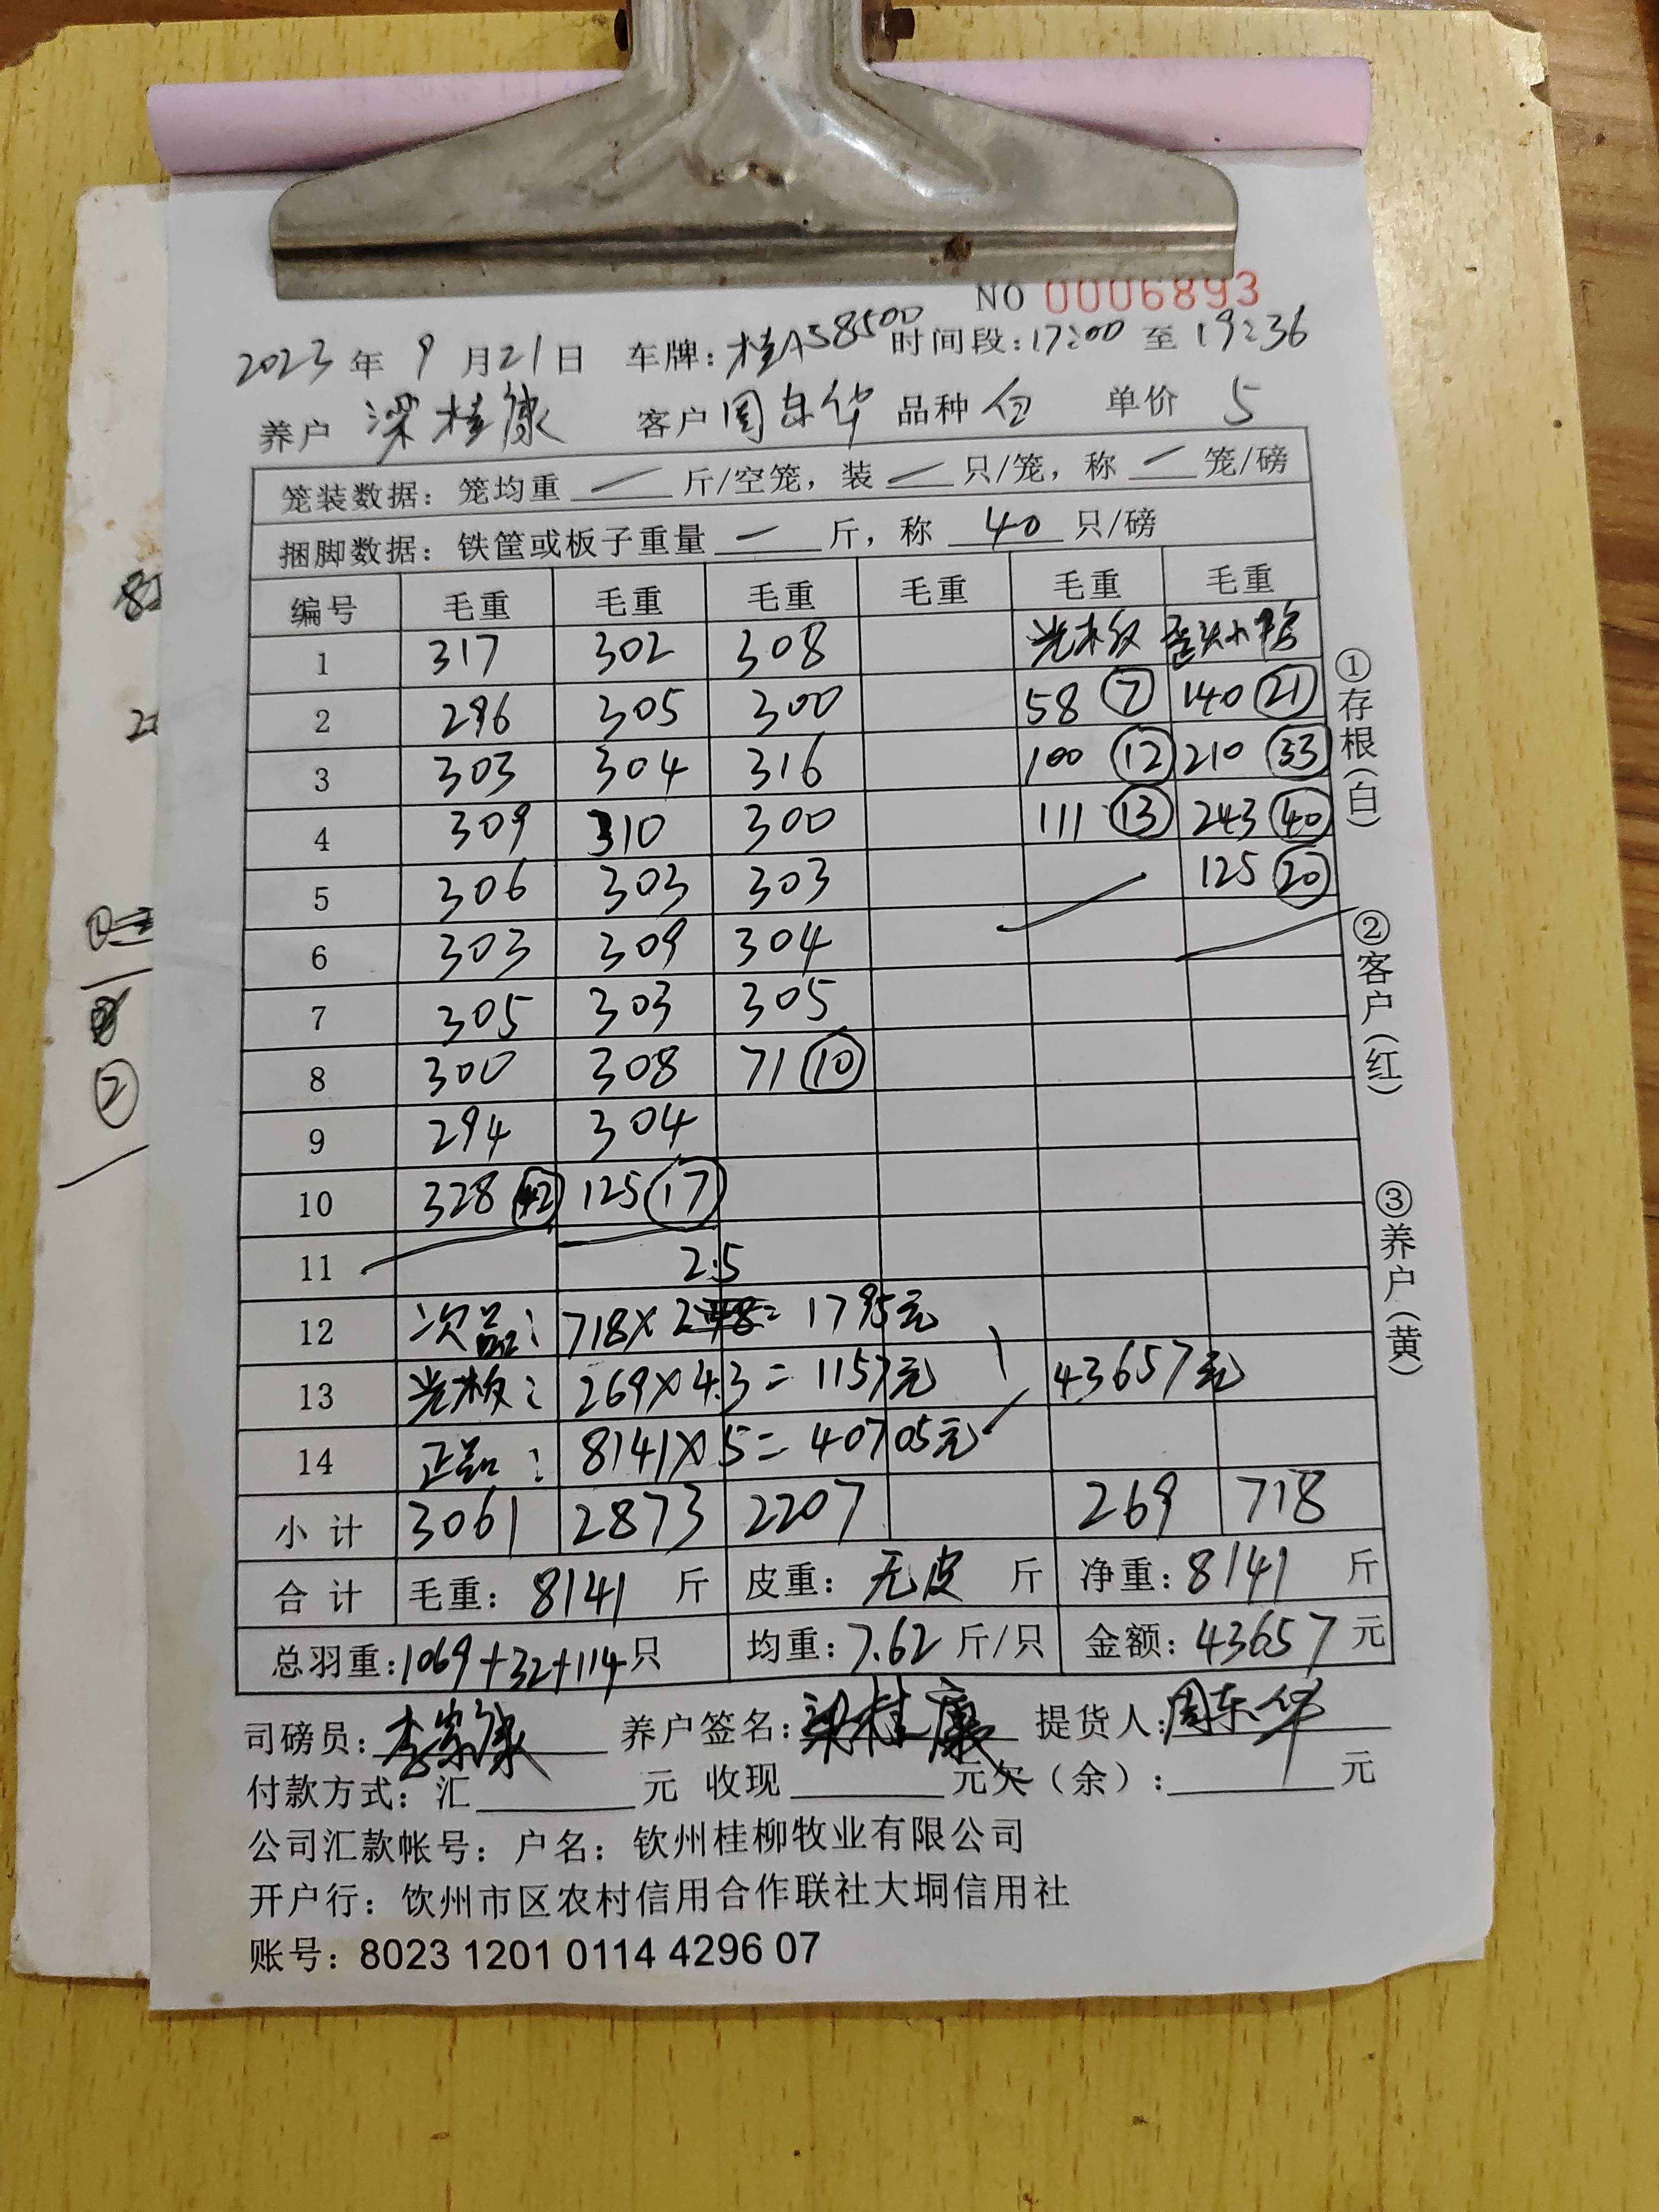 NO 0006893
2023 年 9 月 21 日 车牌: 桂A58500 时间段: 17:00 至 19:36
养户 梁桂康 客户 周东华 品种 白 单价 5
笼装数据: 笼均重 — 斤/空笼, 装 — 只/笼, 称 — 笼/磅
捆脚数据: 铁筐或板子重量 — 斤, 称 40 只/磅
编号 毛重 毛重 毛重 毛重 毛重 毛重
1 317 302 308 光板 歪头小鸭
2 296 305 300 58 ⑦ 140 ㉑
3 303 304 316 100 ⑫ 210 ㉝
4 309 310 300 111 ⑬ 243 ㊵
5 306 303 303 125 ⑳
6 303 309 304
7 305 303 305
8 300 308 71 ⑩
9 294 304
10 328 ㊷ 125 ⑰
11 2.5
12 次品: 718×2.48= 1795元
13 光板: 269×4.3= 1157元 43657元
14 正品: 8141×5= 40705元
小计 3061 2873 2207 269 718
合计 毛重: 8141 斤 皮重: 无皮 斤 净重: 8141 斤
总羽重: 1069+32+114 只 均重: 7.62 斤/只 金额: 43657 元
司磅员: 李家康 养户签名: 梁桂康 提货人: 周东华
付款方式: 汇 元 收现 元 欠(余): 元
公司汇款帐号: 户名: 钦州桂柳牧业有限公司
开户行: 饮州市区农村信用合作联社大垌信用社
账号: 8023 1201 0114 4296 07
①存根(白)
②客户(红)
③养户(黄)
②